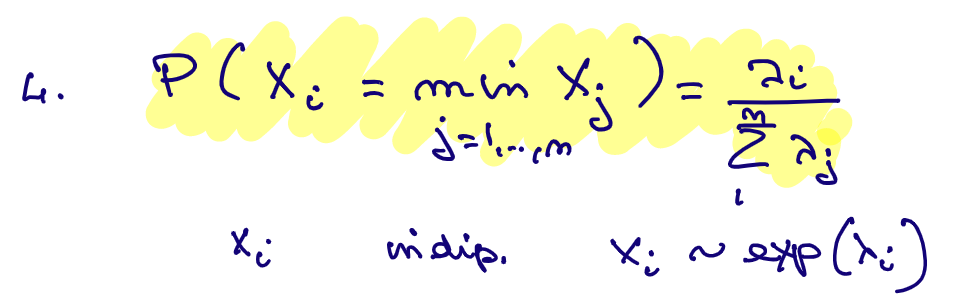 4. P(X_i = min_{j=1,...,n} X_j) = λ_i / Σ_1^n λ_j
X_i indip. X_i ~ exp(λ_i)